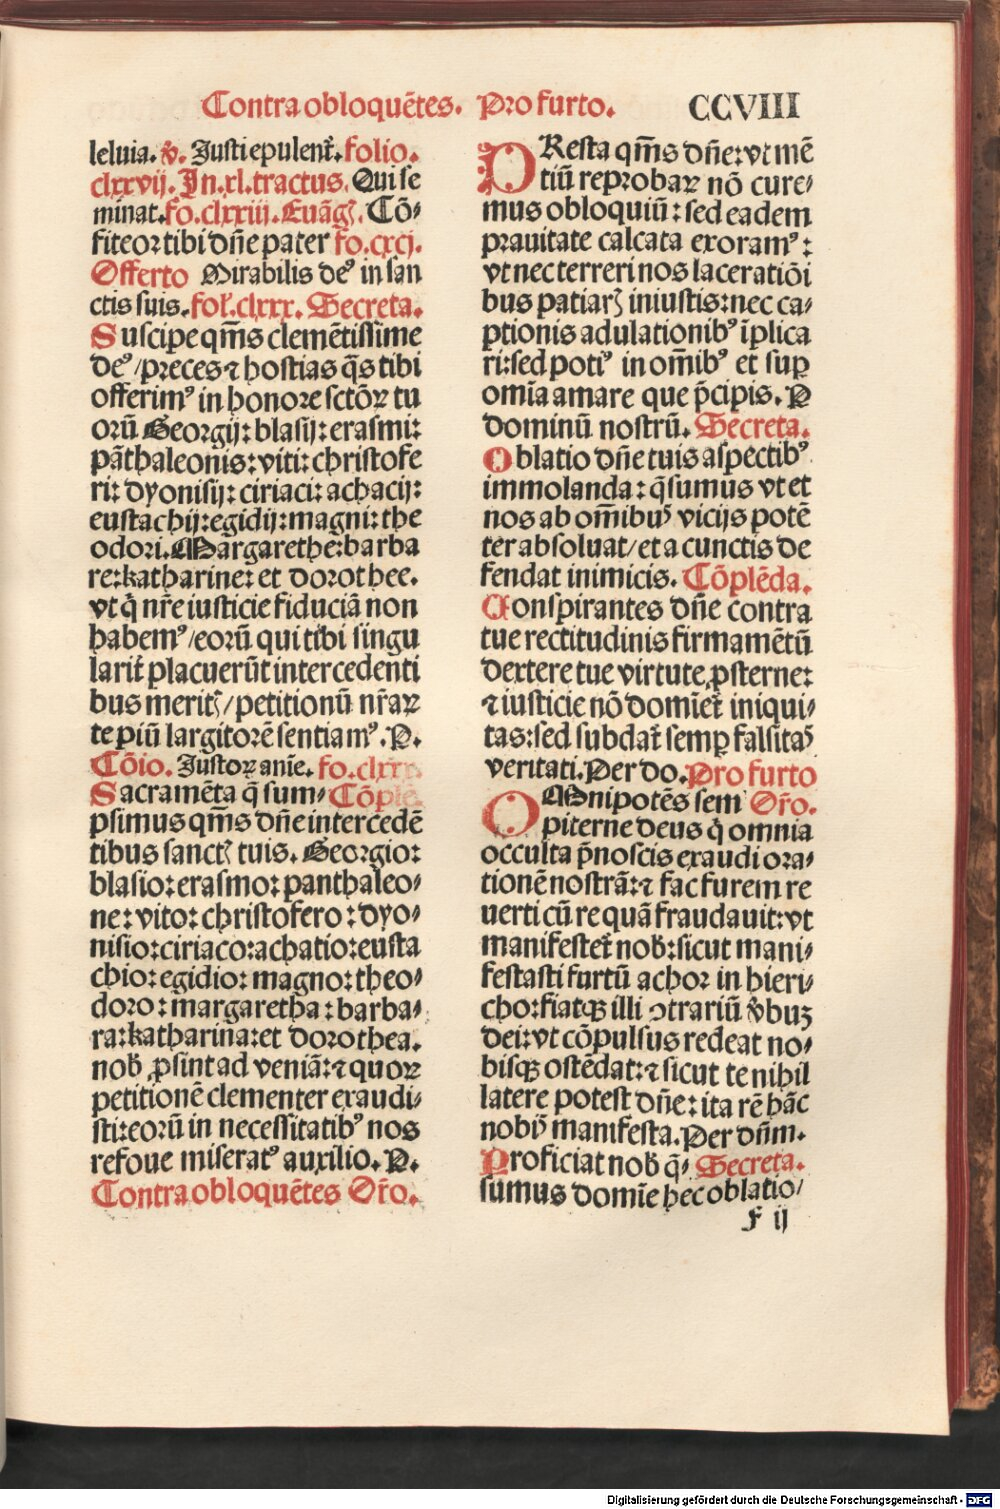 Contra obloquētes. Pro furto. CCVIII
leluia. ℣. Justi epulent᷑. folio.
clxxvij. In .xl. tractus. Qui se
minat. fo. clxxiii. Euāgꝫ. Cō⸗
fiteor tibi dn̄e pater fo. cxcj.
Offerto Mirabilis deꝰ in san
ctis suis. fol̕. clxxx. Secreta.
Suscipe qm̄s clemētissime
deꝰ / preces ⁊ hostias q̄s tibi
offerimꝰ in honore sctōꝝ tu
orū Georgij: blasij: erasmi:
pāthaleonis: viti: christofe
ri: dyonisij: ciriaci: achacij:
eustachij: egidij: magni: the
odori. Margarethe: barba
re: katharine: et dorothee.
vt q̄ nr̄e iusticie fiduciā non
habemꝰ / eorū qui tibi singu
larit᷑ placuerūt intercedenti
bus meritꝭ / petitionū nr̄aꝝ
te piū largitorē sentiamꝰ. P.
Cōio. Justoꝝ anīe. fo. clxx
Sacramēta q̄ sum⸗ Cōplē
psimus qm̄s dn̄e intercedē
tibus sanctꝭ tuis. Georgio:
blasio: erasmo: panthaleo⸗
ne: vito: christofero: dyo⸗
nisio: ciriaco: achatio: eusta
chio: egidio: magno: theo⸗
doro: margaretha: barba⸗
ra: katharina: et dorothea.
nob̕ ꝓsint ad veniā: ⁊ quoꝝ
petitionē clementer exaudi⸗
sti: eorū in necessitatibꝰ nos
refoue miseratꝰ auxilio. P.
Contra obloquētes Or̄o.
PResta qm̄s dn̄e: vt mē
tiū reprobaꝝ nō cure⸗
mus obloquiū: sed eadem
prauitate calcata exoramꝰ:
vt nec terreri nos laceratiōi
bus patiarꝭ iniustis: nec ca⸗
ptionis adulationibꝰ īplica
ri: sed potiꝰ in om̄ibꝰ et suꝑ
omīa amare que p̄cipis. P
dominū nostrū. Secreta.
Oblatio dn̄e tuis aspectibꝰ
immolanda: q̄sumus vt et
nos ab om̄ibuꝰ vicijs potē
ter absoluat / et a cunctis de
fendat inimicis. Cōplēda.
Conspirantes dn̄e contra
tue rectitudinis firmamētū
dextere tue virtute ꝓsterne:
⁊ iusticie nō domīet᷑ iniqui⸗
tas: sed subdat᷑ semꝑ falsitaꝰ
veritati. Per do. Pro furto
OMnipotēs sem Or̄o.
piterne deus q̄ omnia
occulta p̄noscis exaudi ora⸗
tionē nostrā: ⁊ fac furem re
uerti cū re quā fraudauit: vt
manifestet᷑ nob̕: sicut mani⸗
festasti furtū achor in hieri⸗
cho: fiatqꝫ illi ꝯtrariū v̄buꝫ
dei: vt cōpulsus redeat no⸗
bisqꝫ ostēdat: ⁊ sicut te nihil
latere potest dn̄e: ita rē hāc
nobꝭ manifesta. Per dn̄m.
Proficiat nob̕ q̄⸗ Secreta.
sumus domīe hec oblatio⸗
F ij
Digitalisierung gefördert durch die Deutsche Forschungsgemeinschaft - DFG